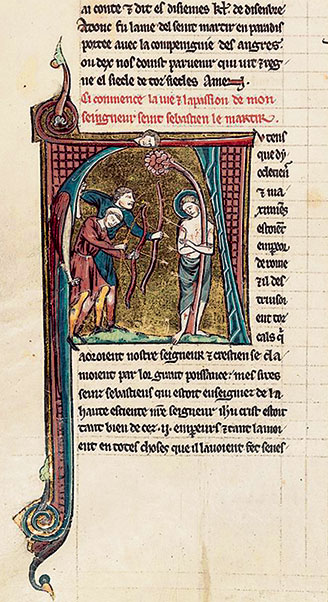 ai conte ⁊ dit el disiemes kl' de disenbre
Adonc fu lame del seint martir en paradis
portee avec la compeignie des angres
ou dex nos doinst parvenir qui vit ⁊ reg
ne el siecle de toz siecles Amen
Ci commence la vie ⁊ la passion de mon
seingneur seint sebastien le martir.
A u tens
que dy
ocletien
⁊ ma
ximiens
estoient
emperor
de rome
⁊ il des
truisoi
ent toz
cals q
aoroient nostre seigneur ⁊ crestien se cla
moient par lor grant poissance; mes sires
seinz sebastiens qui estoit enseignez de la
haute escience nre seigneur ihu crist estoit
tant bien de cez .ij. empereurs ⁊ tant lamoi
ent en totes choses que il lavoient fet senes